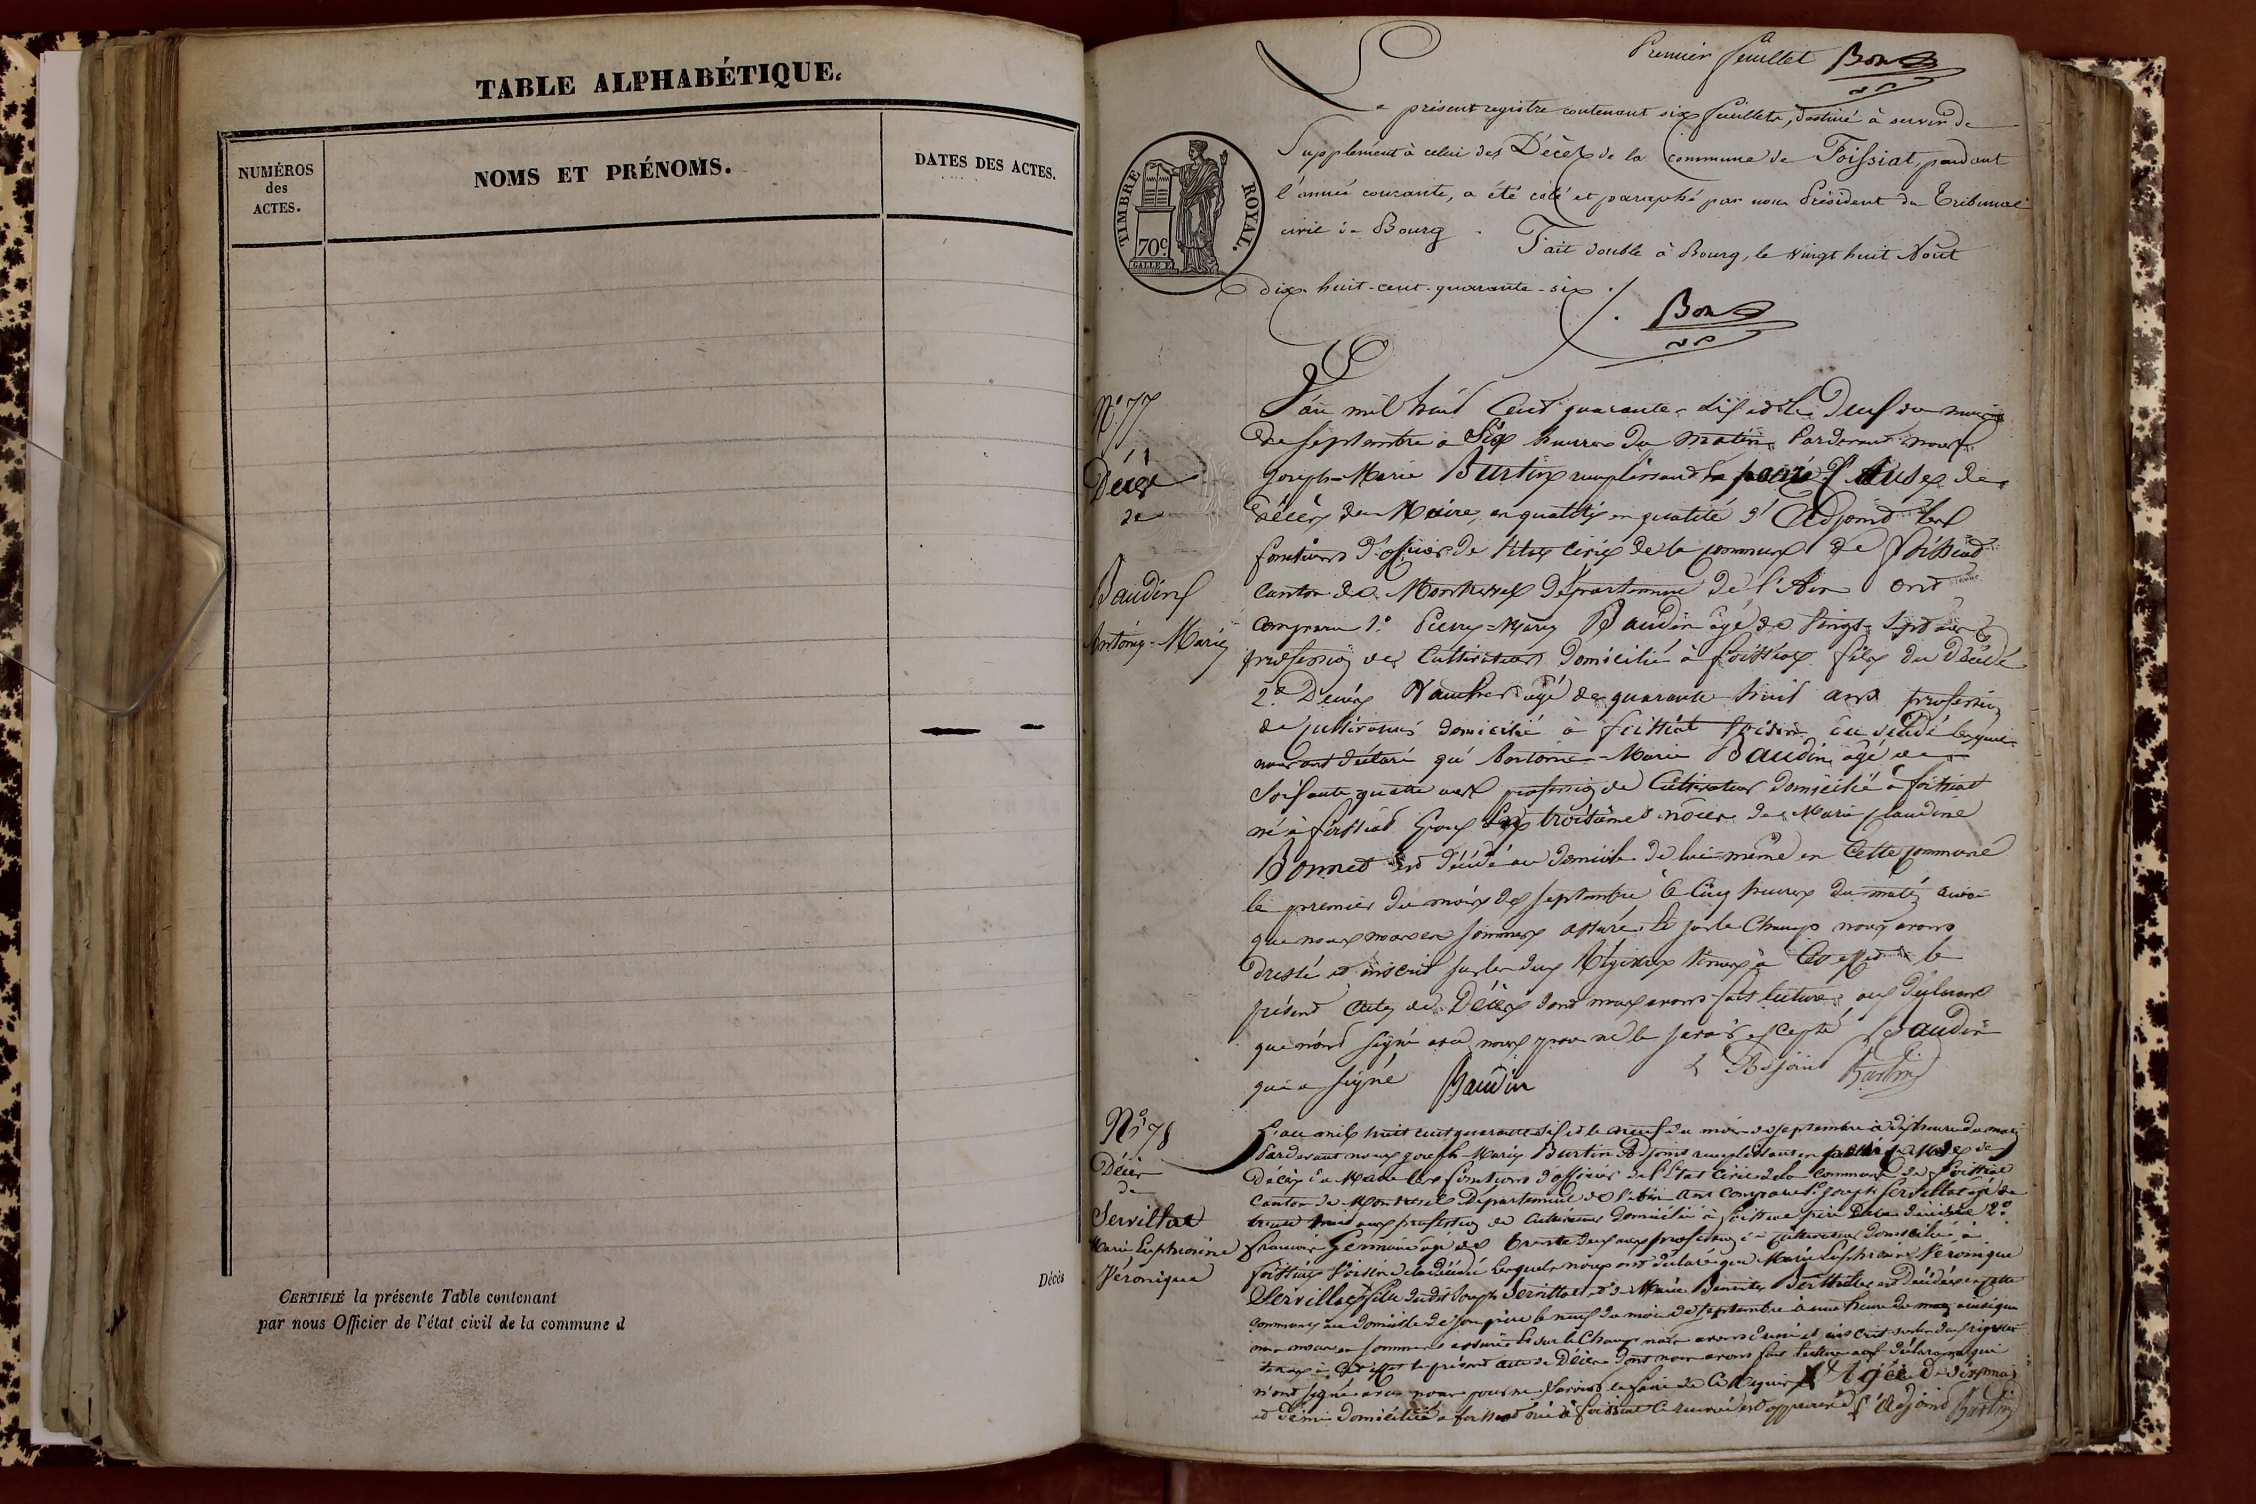 TABLE ALPHABÉTIQUE.
NUMÉROS
des
ACTES.
NOMS ET PRÉNOMS.
DATES DES ACTES.
CERTIFIÉ la présente Table contenant
par nous Officier de l'état civil de la commune d
Décès
Premier feuillet Bon
TIMBRE ROYAL.
70c
Le présent registre contenant six feuillets, destiné à servir de
Supplément à celui des Décès de la Commune de Foissiat, pendant
l'année courante, a été coté et paraphé par nous Président du Tribunal
civil de Bourg. Fait double à Bourg, le vingt huit Août
dix-huit-cent-quarante-six.
Bon
N° 77
Décès
de
Baudin
Antoine-Marie
L'an mil huit Cent quarante-six et le deux du mois
de Septembre à Six heures du matin Pardevant nous
Joseph-Marie Burtin remplissant de
décès du Maire en qualité en qualité d'Adjoint les
fonctions d'officier de l'état Civil de la commune de Foissiat
Canton de Montrevel département de l'Ain ont
Comparu 1° Pierre-Marie Baudin âgé de vingt-sept ans
profession de Cultivateur domicilié à Foissiat fils du décédé
2° Denis âgé de quarante huit ans profession
de cultivateur domicilié à foissiat voisin du décédé lesquels
nous ont déclaré que Antoine-Marie Baudin âgé de
Soixante quatre ans profession de Cultivateur domicilié à foissiat
né à foissiat Epoux en troisièmes nôces de Marie Claudine
Bonnet est décédé au domicile de lui-même en Cette Commune
le premier du mois de septembre à Cinq heures du matin ainsi
que nous nous en sommes assuré. Et sur le Champ nous avons
dressé et inscrit sur les deux Régistres tenus à Cet effet le
présent acte de Décès dont nous avons fait lecture aux déclarants
qui n'ont signé avec nous pour ne le savoir excepté Baudin
qui a signé Baudin L'Adjoint Burtin
N° 78
Décès
de
Servillat
Marie Euphrosine
Véronique
L'an mil huit cent quarante six et le neuf du mois de septembre à dix heures du matin
Pardevant nous Joseph-Marie Burtin Adjoint remplissant de
Décès du Maire les fonctions d'officier de l'Etat Civil de la Commune de Foissiat
Canton de Montrevel Département de l'Ain ont comparu 1° Joseph Servillat âgé de
trente trois ans profession de Cultivateur domicilié à foissiat père de la décédée 2°
François Germain âgé de trente deux ans profession de Cultivateur domicilié à
foissiat voisin de la décédée lesquels nous ont déclaré que Marie Euphrosine Véronique
Servillat X fille dudit Joseph Servillat et de Marie est décédée en cette
commune au domicile de son père le neuf du mois de septembre à une heure du matin ainsi que
nous nous en sommes assuré Et sur le Champ nous avons dressé et inscrit sur les deux régistres
tenus à Cet effet le présent acte de Décès dont nous avons fait lecture aux déclarants qui
n'ont signé avec nous pour ne savoir le faire de Ce requis X Agée de dix mois
et demi domiciliée à foissiat née à foissiat le renvoi est approuvé L'Adjoint Burtin